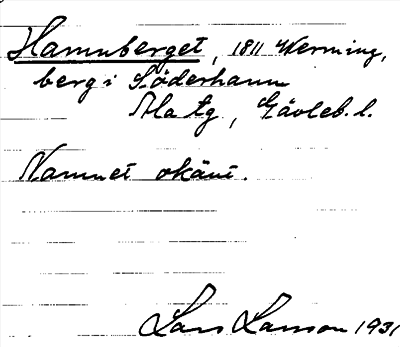 Hamnberget, 1811 Werning,
berg i Söderhamn
Ala tg, Gävleb. l.
Namnet okänt.
Lars Larsson 1931